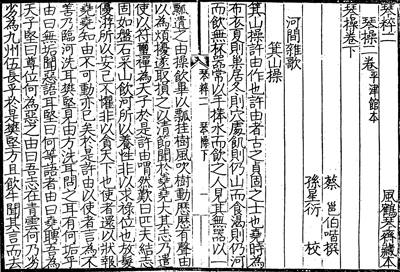 琴粹二　風鶴琴齋藏本
琴操二卷 平津館本
琴操卷下
蔡邕伯喈撰
孫星衍校
河間雜歌
箕山操
箕山操許由作也許由者古之貞固之士也堯時為
布衣夏則巢居冬則穴處飢則仍山而食渴則仍河
而飲無杯器常以手捧水而飲之人見其無器以一
琴粹二 琴操下 一
瓢遺之由操飲畢以瓢挂樹風吹樹動歷歷有聲由
以為煩擾遂取損之以清節聞於堯堯大其志乃遣
使以符璽禪為天子於是許由喟然歎曰匹夫結志
固如盤石采山飲河所以養性非以求祿位也放髮
優游所以安己不懼非以貪天下也使者還以狀報
堯堯知由不可動亦已矣於是許由以使者言為不
善乃臨河洗耳樊堅見由方洗耳問之耳有何垢乎
由曰無垢聞惡語耳堅曰何等語者由曰堯聘吾為
天子堅曰尊位何為惡之由曰吾志在青雲何乃劣
劣為九州伍長乎於是樊堅方且飲牛聞其言而去